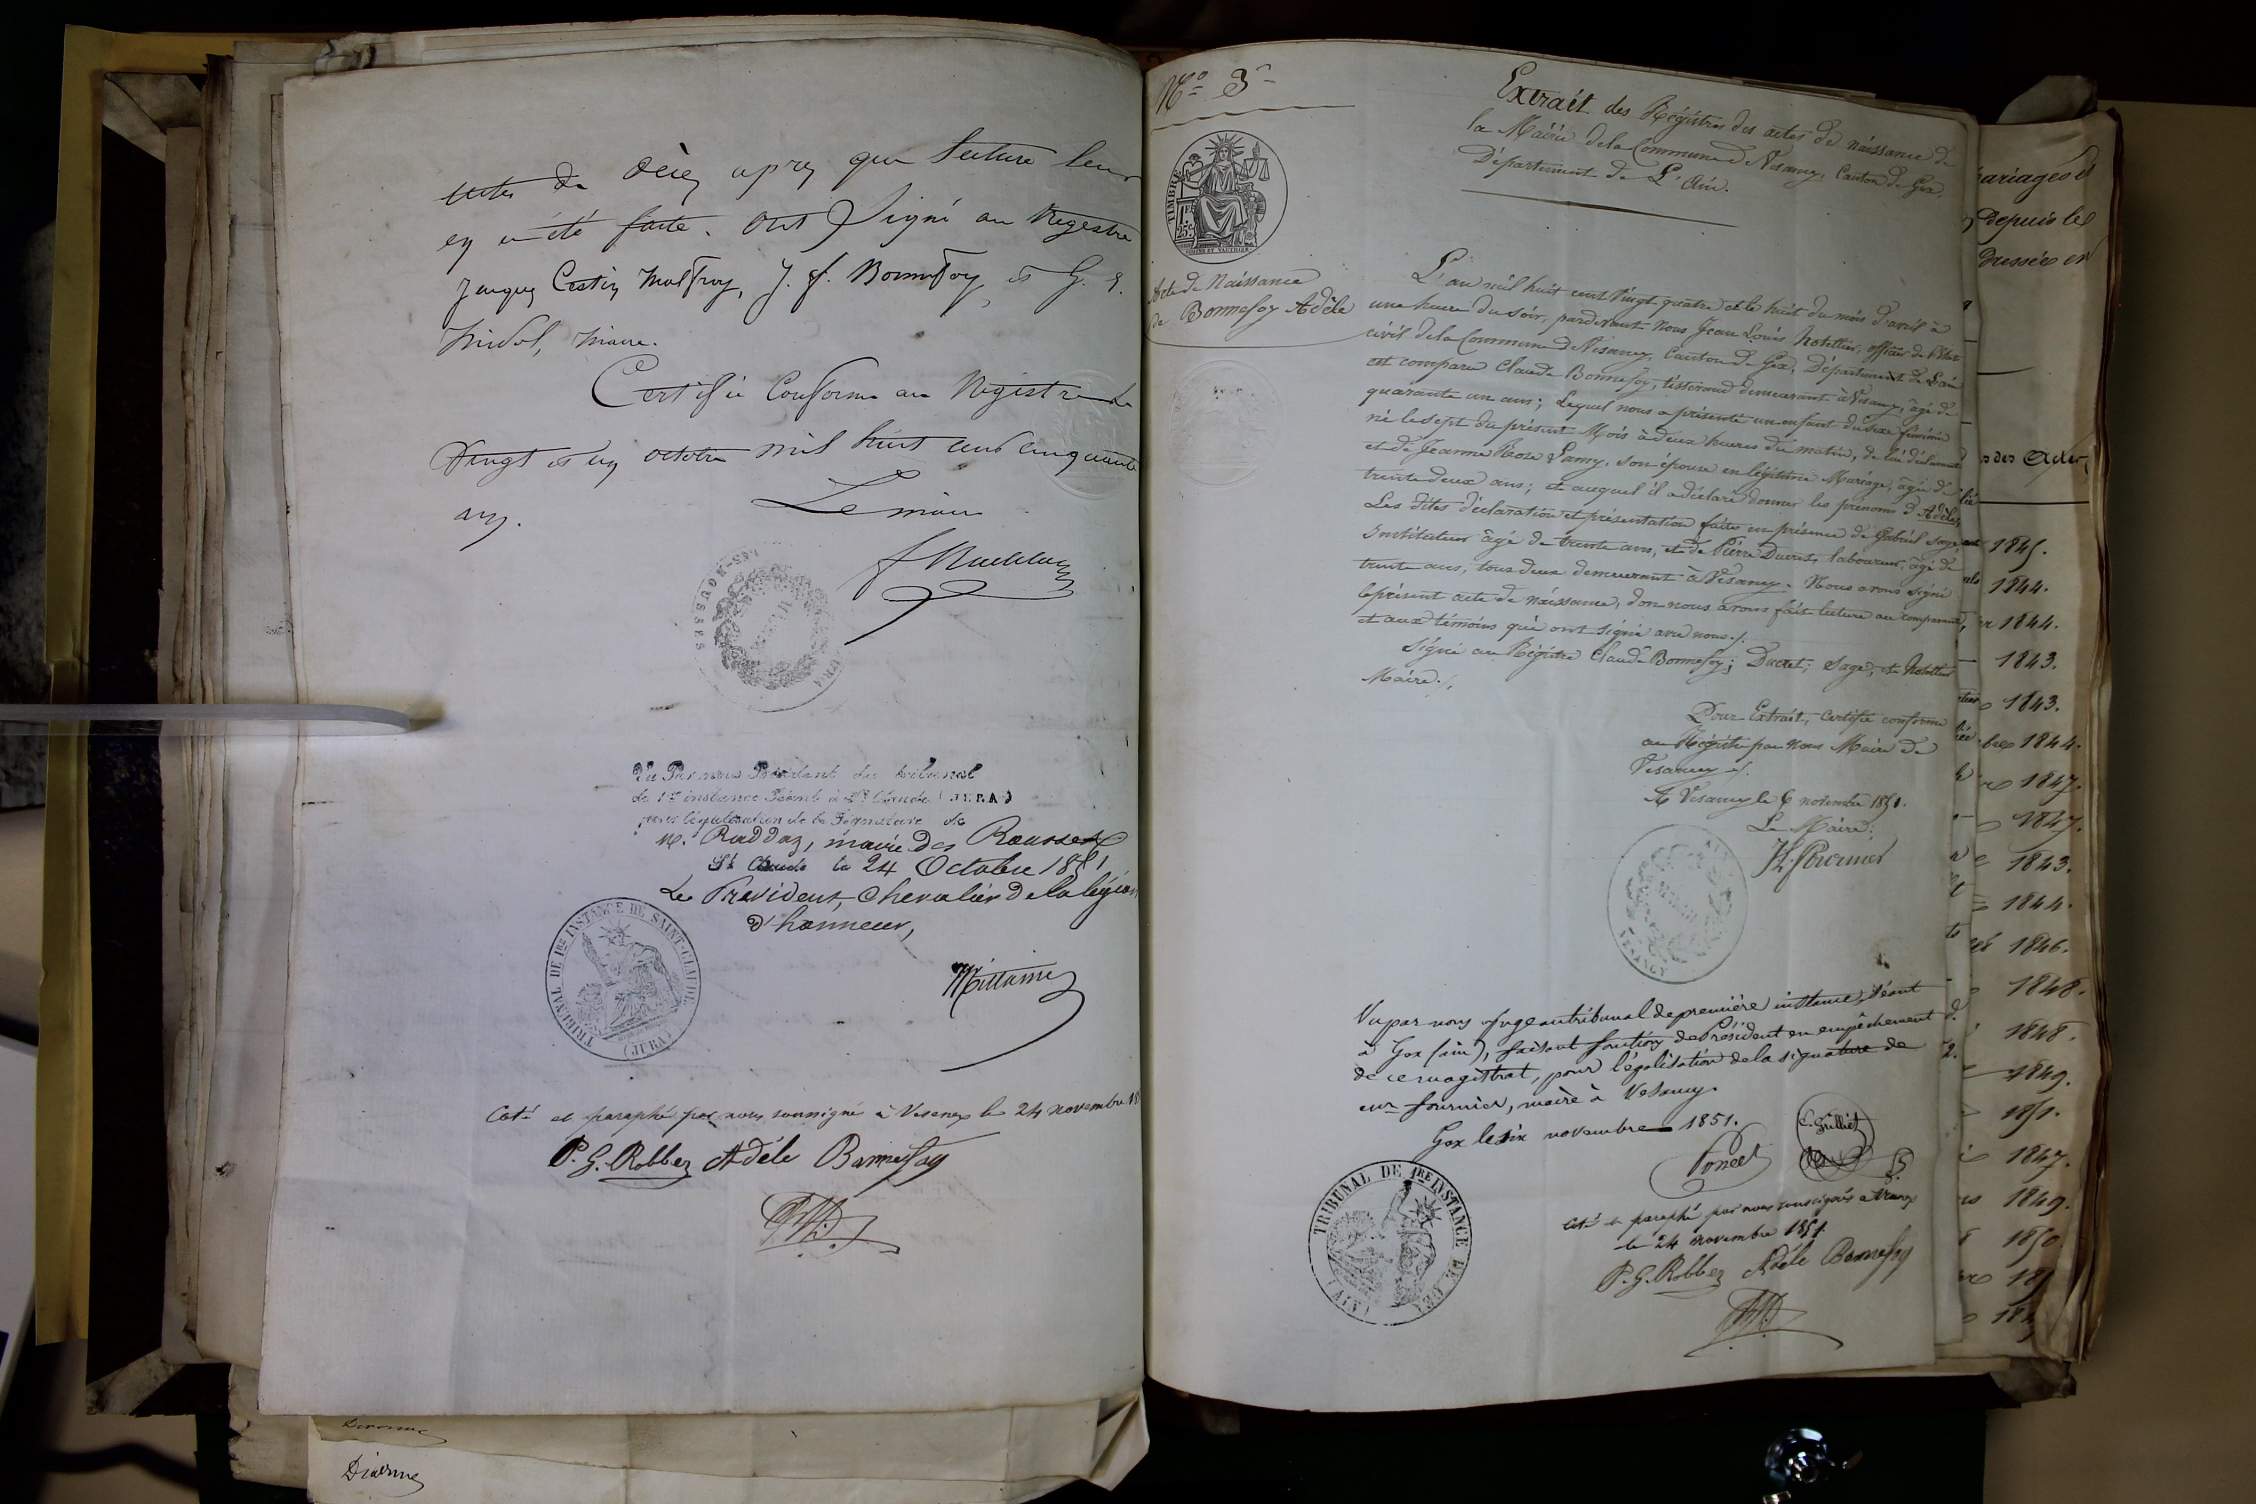 acte de décès après que lecture leur
en a été faite. ont signé au Registre
Jacques Célestin Malfroy, J. f. Bonnefoy, et G. E.
maire.
Certifié Conforme au Registre le
Vingt et un octobre mil huit cent cinquante
un.
Le maire
LES-ROUSSES
JURA
Vu Par nous Président du tribunal
de 1re instance séant à St Claude (JURA)
pour légalisation de la Signature de
M. Raddaz, maire Des Rousses
St Claude le 24 Octobre 1851
Le Président, Chevalier De la légion
d'honneur,
TRIBUNAL DE 1RE INSTANCE DE SAINT-CLAUDE
(JURA)
Coté et paraphé par nous soussigné à Vesenex le 24 novembre 18
P. G. Robbez Adèle Bonnefoy
N° 3
TIMBRE
1F 25c
Acte de Naissance
de Bonnefoy Adèle
Extrait des Régistres des actes de naissance de
la Mairie de la Commune de Vesancy, Canton de Gex,
Département de L'Ain.
L'an mil huit cent vingt quatre et le huit du mois d'avril à
une heure du soir, pardevant Nous Jean Louis officier de l'Etat
civil de la Commune de Vesancy, Canton de Gex, Département de L'ain
est comparu Claude Bonnefoy, tisserand demeurant à Vesancy, âgé de
quarante un ans; Lequel nous a présenté un enfant du sexe féminin
né le sept du présent Mois à deux heures du matin, de lui déclarant
et de Jeanne Rose Lamy, son épouse en légitime Mariage, âgée de
trente deux ans; et auquel il a déclaré donner les prénoms d'Adèle,
Les dites déclaration et présentation faites en présence de Gabriel Sage
Instituteur âgé de trente ans, et de Pierre Ducret, laboureur, âgé de
trente ans, tous deux demeurant à Vesancy. Nous avons signé
le présent acte de naissance, don nous avons fait lecture au comparant,
et aux témoins qui ont signé avec nous./.
Signé au Régistre Claude Bonnefoy; Ducret; Sage; et
Maire./.
Pour Extrait, Certifié conforme
au Régistre par Nous Maire de
Vesancy ./.
A Vesancy le 6 novembre 1851.
Le Maire;
Fournier
AIN
MAIRIE
VESANCY
Vu par nous Juge au tribunal de première instance, séant
à Gex (ain), faisant fonction de Président en empêchement
de ce magistrat, pour légalisation de la signature de
sieur fournier, maire à Vesancy.
Gex le six novembre 1851.
Poncet
C. Grilliet
TRIBUNAL DE 1RE INSTANCE DE GEX
(AIN)
coté et paraphé par nous soussignés à Vesenex
le 24 novembre 1851
P. G. Robbez Adèle Bonnefoy
mariages et
depuis le
dressée en
des Actes,
1845.
1844.
1844.
1843.
1843.
1844.
1847.
1847.
1843.
1844.
1846.
1848.
1848.
1849.
1851.
1847.
1849.
1850